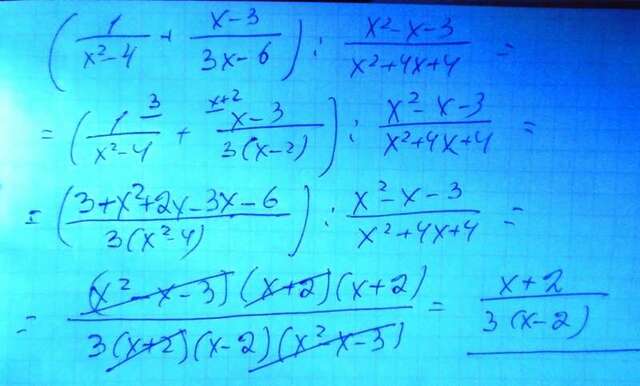 (1/(x²-4) + (x-3)/(3x-6)) : (x²-x-3)/(x²+4x+4) =
= (1 3/(x²-4) + x+2 (x-3)/(3(x-2))) : (x²-x-3)/(x²+4x+4) =
= ((3+x²+2x-3x-6)/(3(x²-4))) : (x²-x-3)/(x²+4x+4) =
= ((x²-x-3)(x+2)(x+2))/(3(x+2)(x-2)(x²-x-3)) = (x+2)/(3(x-2))